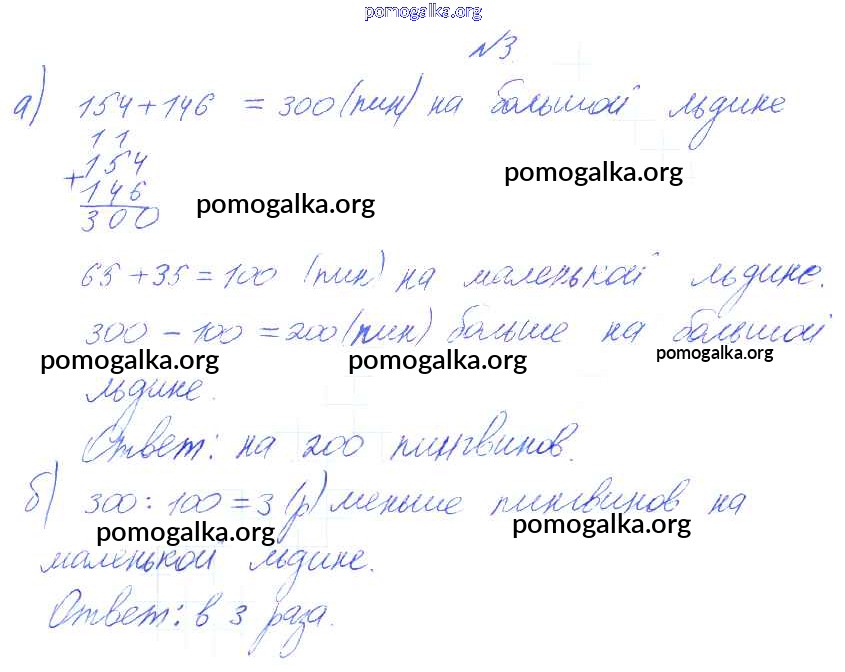 pomogalka.org
№3.
а) 154+146 = 300 (пин) на большой льдине
11
+154
pomogalka.org
146
pomogalka.org
300
65+35=100 (пин) на маленькой льдине.
300 - 100 = 200 (пин) больше на большой
pomogalka.org pomogalka.org pomogalka.org
льдине.
Ответ: на 200 пингвинов.
б) 300 : 100 = 3 (р) меньше пингвинов на
pomogalka.org pomogalka.org
маленькой льдине.
Ответ: в 3 раза.